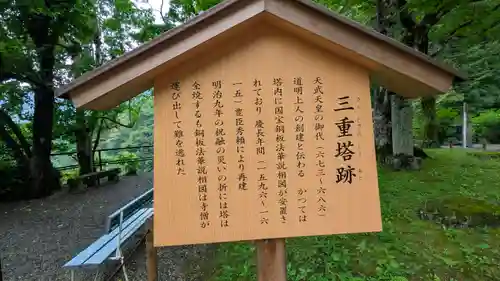 三重塔跡
天武天皇の御代（六七三〜六八六）
道明上人の創建と伝わる かつては
塔内に国宝銅板法華説相図が安置さ
れており 慶長年間（一五九六〜一六
一五）豊臣秀頼により再建
明治九年の祝融の災いの折には塔は
全焼するも銅板法華説相図は寺僧が
運び出して難を逃れた